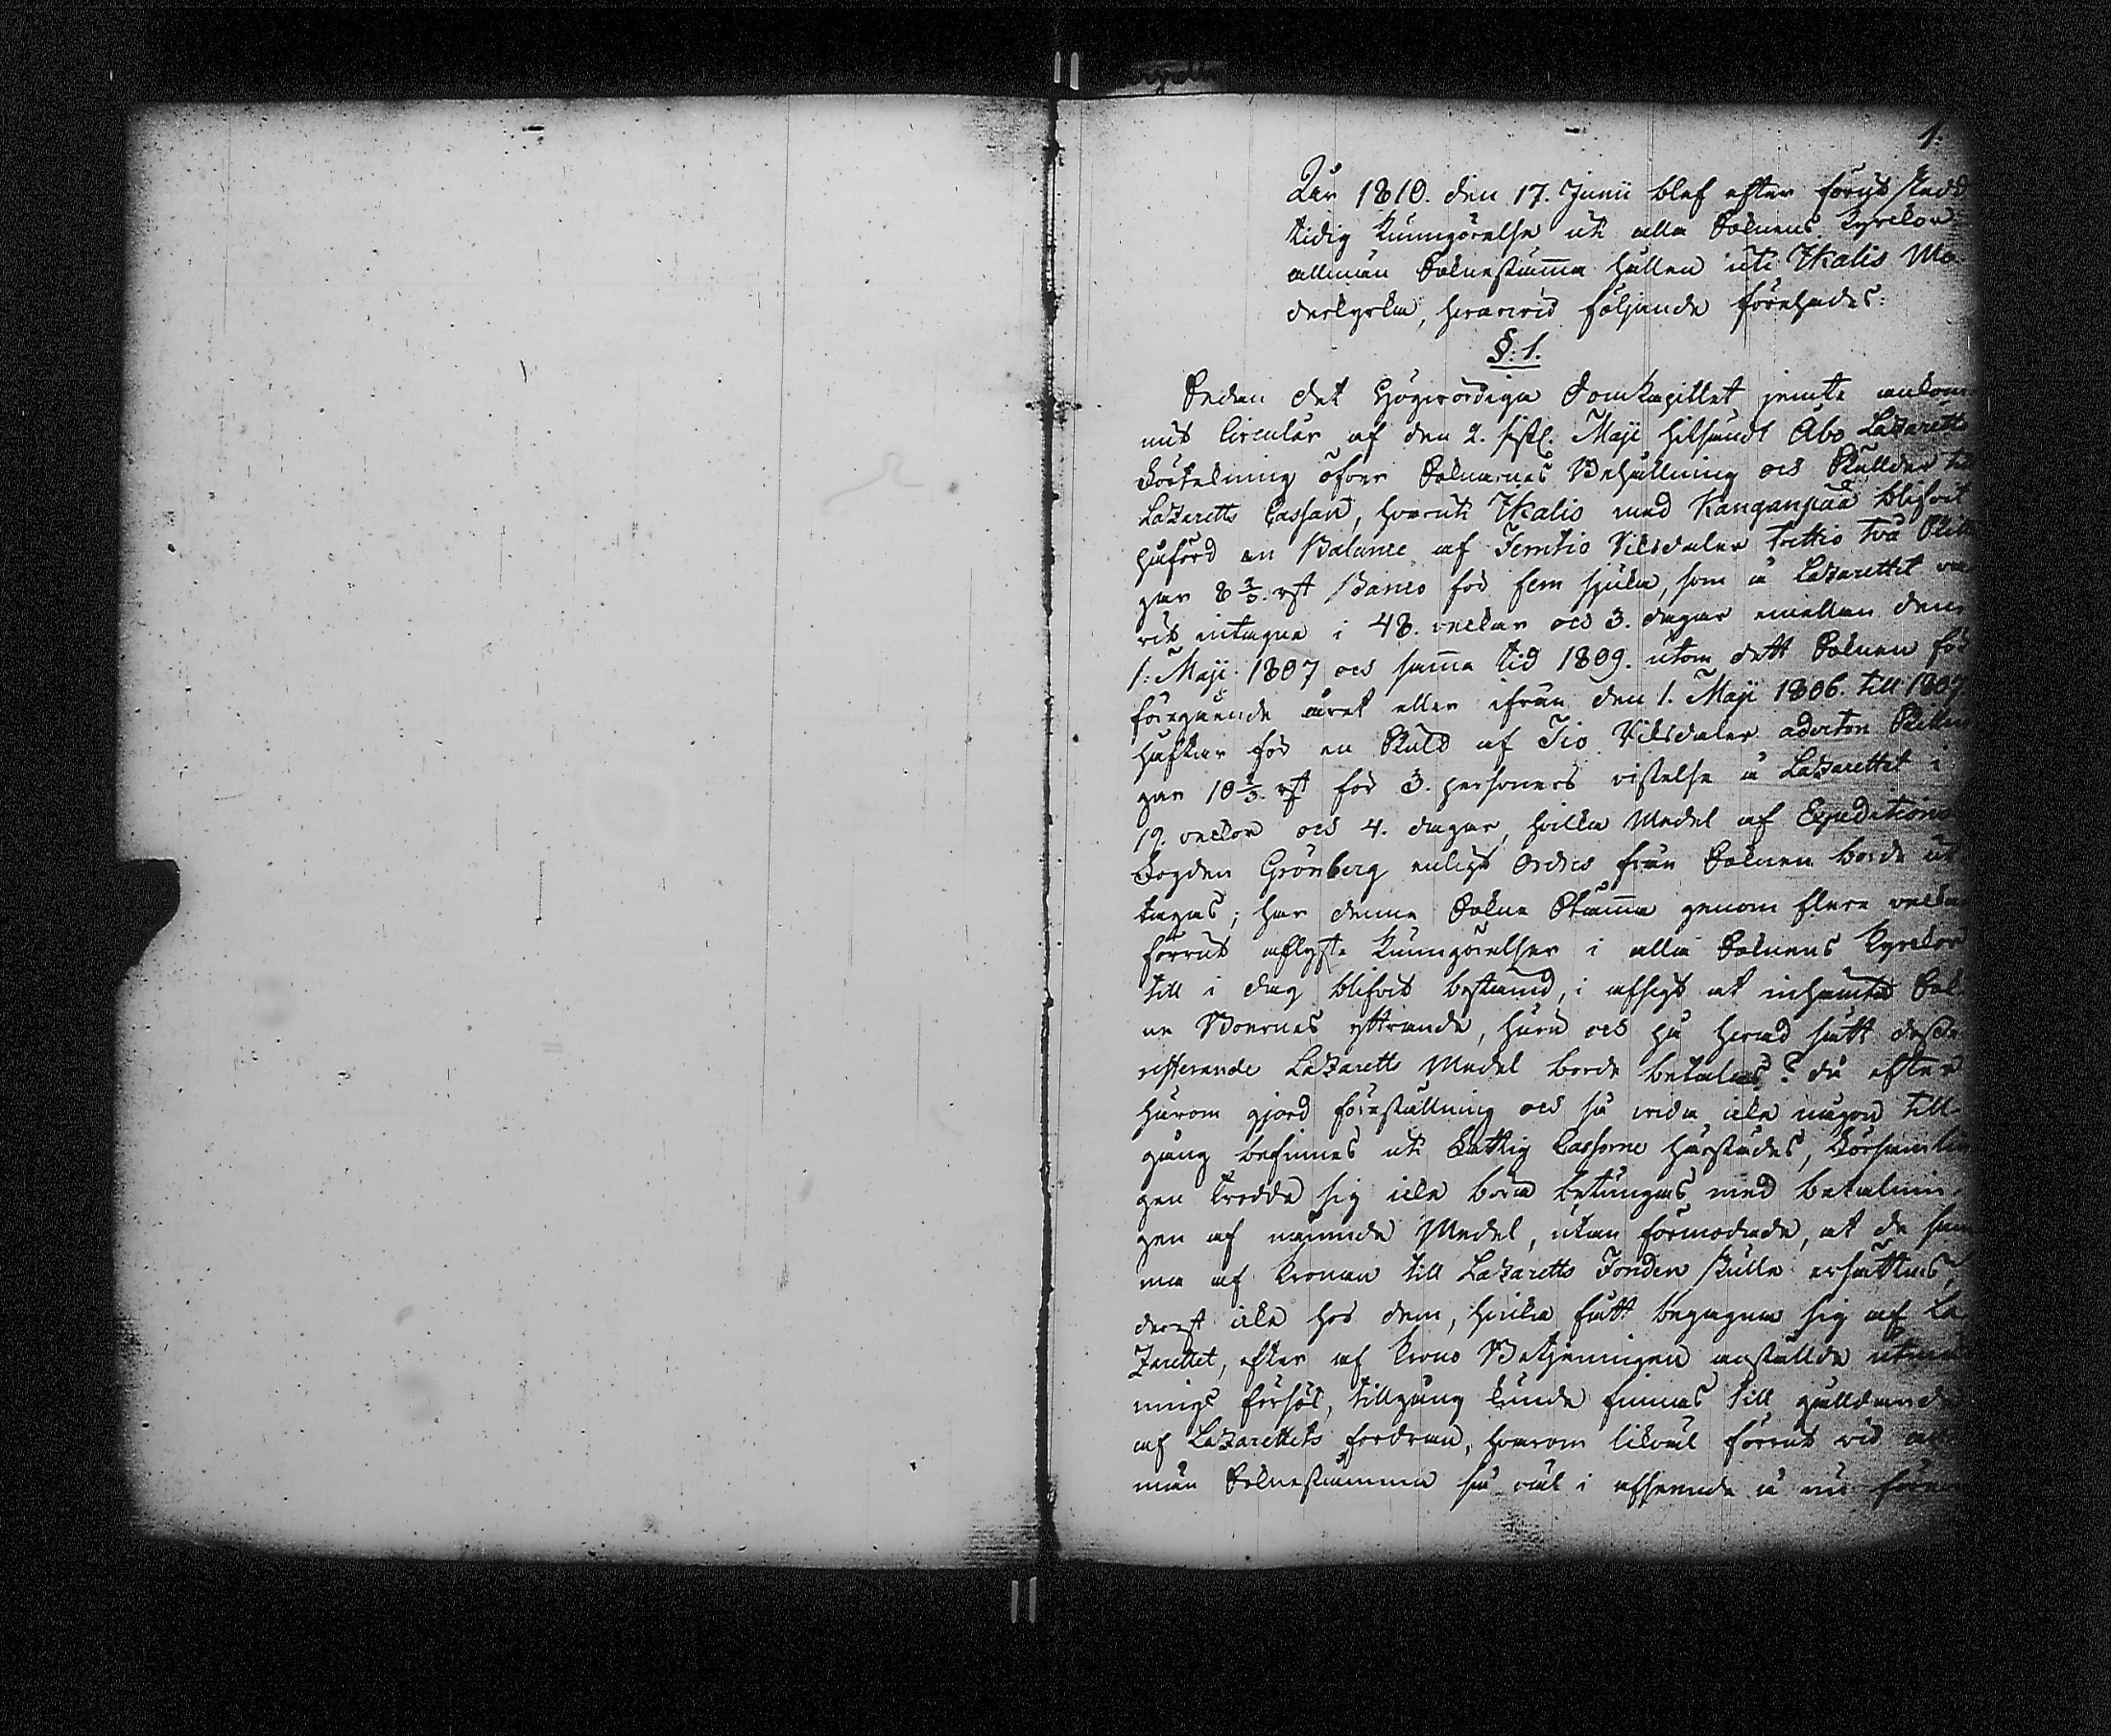 1.
År 1810. den 17. Junii blef efter förut skedd
tidig kungörelse uti alla Soknens kyrkor
allmän Soknestämma hållen uti Ikalis Mo-
derkyrka, hvarvid följande förehades:
§: 1.
Sedan det Högvördiga Domkapitlet jemte ankom-
mit Circulär af den 2. sistl. Maji hitsändt Åbo Lazaretts
Förtekning öfver Soknarnes Behållning och Skulder till
Lazaretts Cassan, hvaruti Ikalis med Kanganpää blifvit
påförd en Balance af Femtio Riksdaler trettio två Skillin-
gar 8 2/3 rst Banco för fem sjuka, som å Lazarettet va-
rit intagne i 48. veckor och 3. dagar emellan den
1. Maji 1807 och samma tid 1809. utom dett Soknen för
föregående året eller ifrån den 1. Maji 1806. till 1807.
häftar för en Skuld af Tio Riksdaler aderton Skillin-
gar 10 2/3. rst för 3. personers vistelse å Lazarettet i
19. veckor och 4. dagar, hvilka Medel af Expeditions
Fogden Grönberg enligt Ordres från Soknen borde ut-
tagas; har denna Sokne Stämma genom flere veckor
förrut aflyste kungörelser i alla Soknens kyrkor
till i dag blifvit bestämd, i afsigt at inhämta Sok-
ne Boernes yttrande, huru och på hvad sätt dessa
resterande Lazaretts Medel borde betalas? då efter
härom gjord föreställning och så vida icke någon till-
gång befinnes uti Fattig Cassorne härstädes, Församlin-
gen trodde sig icke böra betungas med betalnin-
gen af nämnde Medel, utan förmodade, at de sam-
ma af Kronan till Lazaretts Fonden skulle ersättas,
derest icke hos dem, hvilka fått begagna sig af La-
zarettet, efter af Krono Betjeningen anstälde utmät-
nings försök, tillgång kunde finnas till gäldande
af Lazarettets fordran, hvarom likväl förrut vid all-
män Soknestämma så väl i afseende å nu